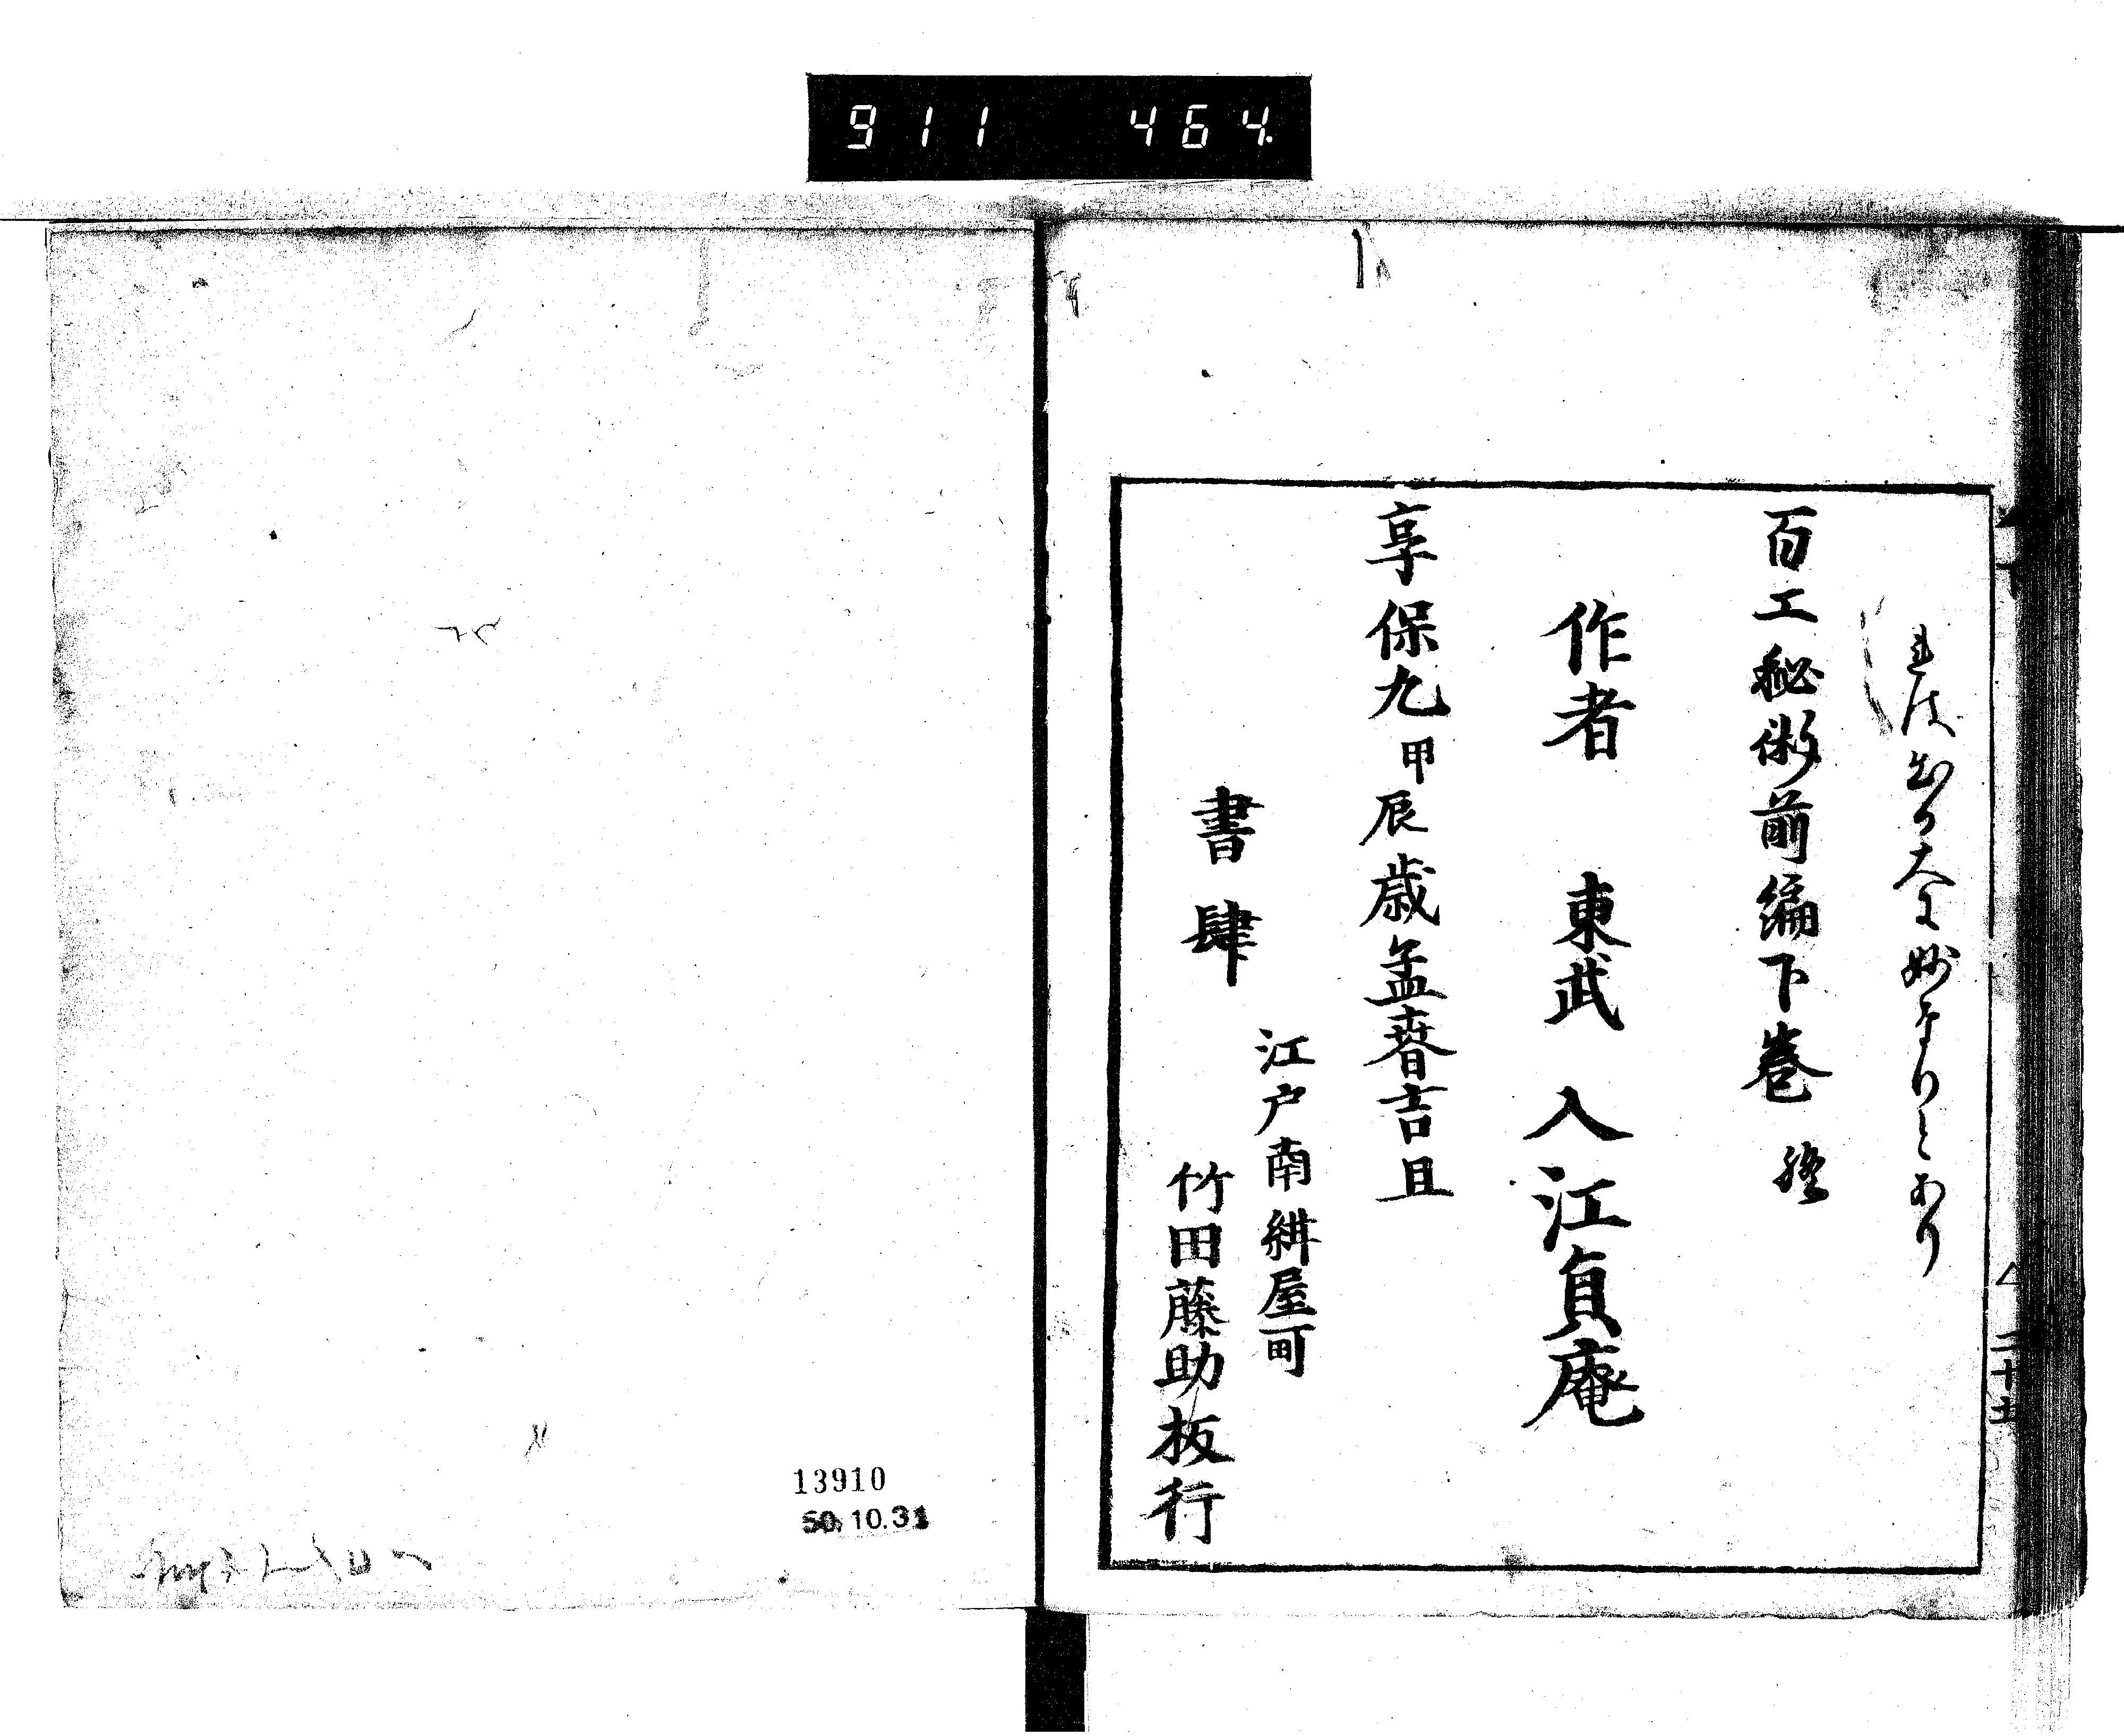 911 464.
れ法出る大に妙なりとあり
百工秘術前編下巻 終
作者 東武 入江貞庵
享保九甲辰歳孟春吉旦
書肆
江戸南紺屋町
竹田藤助板行
二十五
13910
50.10.31